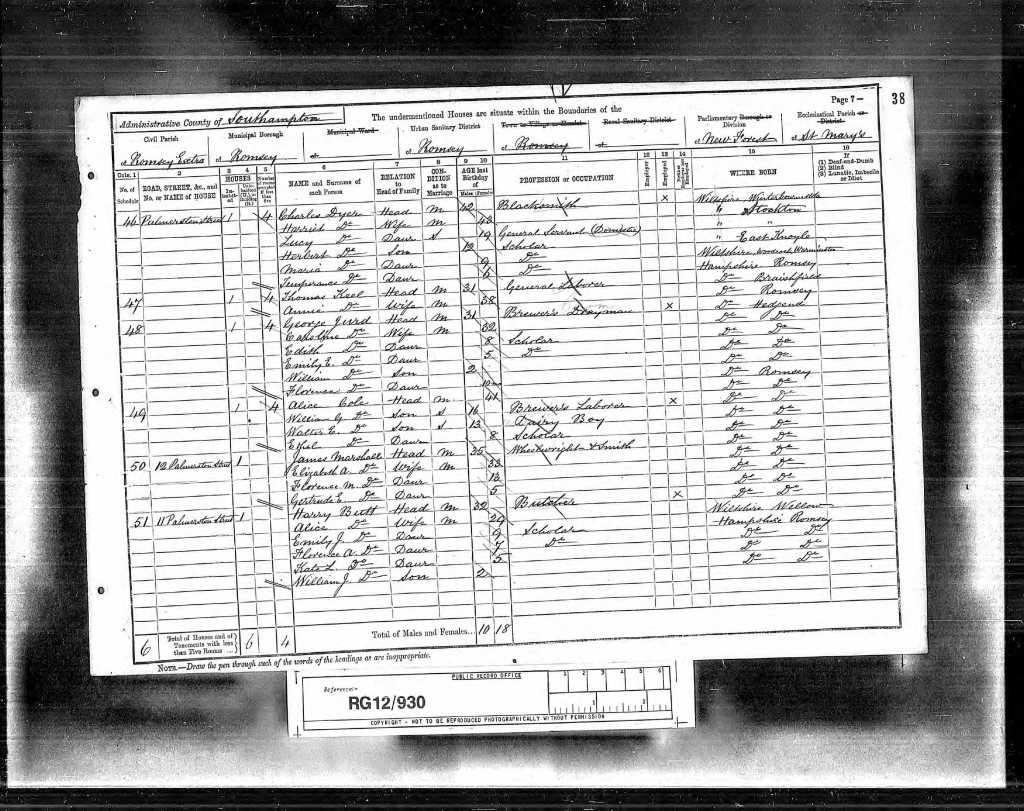 Page 7 38
Administrative County of Southampton The undermentioned Houses are situate within the Boundaries of the
Civil Parish Municipal Borough Municipal Ward Urban Sanitary District Town or Village or Hamlet Rural Sanitary District Parliamentary Borough or Division Ecclesiastical Parish or District
of Romsey Extra of Romsey of of Romsey of Romsey of of New Forest of St Mary's
Cols. 1 2 3 4 5 6 7 8 9 10 11 12 13 14 15 16
No. of Schedule ROAD, STREET, &c., and No. or NAME of HOUSE HOUSES NAME and Surname of each Person RELATION to Head of Family CONDITION as to Marriage AGE last Birthday of Males Females PROFESSION or OCCUPATION Employer Employed WHERE BORN If (1) Deaf-and-Dumb (2) Blind (3) Lunatic, Imbecile or Idiot
46 Palmerston Street 1 4 Charles Dyer Head M 42 Blacksmith x Wiltshire
Harriet Do Wife M 43 " Stockton
Lucy Do Daur S 19 General Servant (Domestic) " "
Herbert Do Son 12 Scholar " East Knoyle
Maria Do Daur 9 Do Wiltshire
Temperance Do Daur 6 Do Hampshire Romsey
47 1 4 Thomas Keel Head M 31 General Laborer Do Braishfield
Annie Do Wife M 38 Do Romsey
48 1 4 George Jurd Head M 31 Brewer's Drayman x Do Hedgend
Caroline Do Wife M 32 Do Do
Edith Do Daur 8 Scholar Do Do
Emily E. Do Daur 5 Do Do Do
William Do Son 2 Do Romsey
Florence Do Daur Do Do
49 1 4 Alice Cole Head M 41 Do Do
William G. Do Son S 16 Brewer's Laborer x Do Do
Walter E. Do Son S 13 Dairy Boy Do Do
Ethel Do Daur 8 Scholar Do Do
50 12 Palmerston Street 1 James Marshall Head M 35 Wheelwright & Smith Do Do
Elizabeth A. Do Wife M 33 Do Do
Florence M. Do Daur 13 Do Do
Gertrude E. Do Daur 5 Do Do
51 11 Palmerston Street 1 Harry Butt Head M 32 Butcher x Wiltshire Wellow
Alice Do Wife M 29 Hampshire Romsey
Emily J. Do Daur 9 Scholar Do Do
Florence A. Do Daur 7 Do Do Do
Kate L. Do Daur 5 Do Do
William J. Do Son 2
6 Total of Houses and of Tenements with less than Five Rooms 6 4 Total of Males and Females... 10 18
NOTE.—Draw the pen through such of the words of the headings as are inappropriate.
PUBLIC RECORD OFFICE 1 2 3 4 5 6
Reference:-
RG12/930 1 2
COPYRIGHT - NOT TO BE REPRODUCED PHOTOGRAPHICALLY WITHOUT PERMISSION